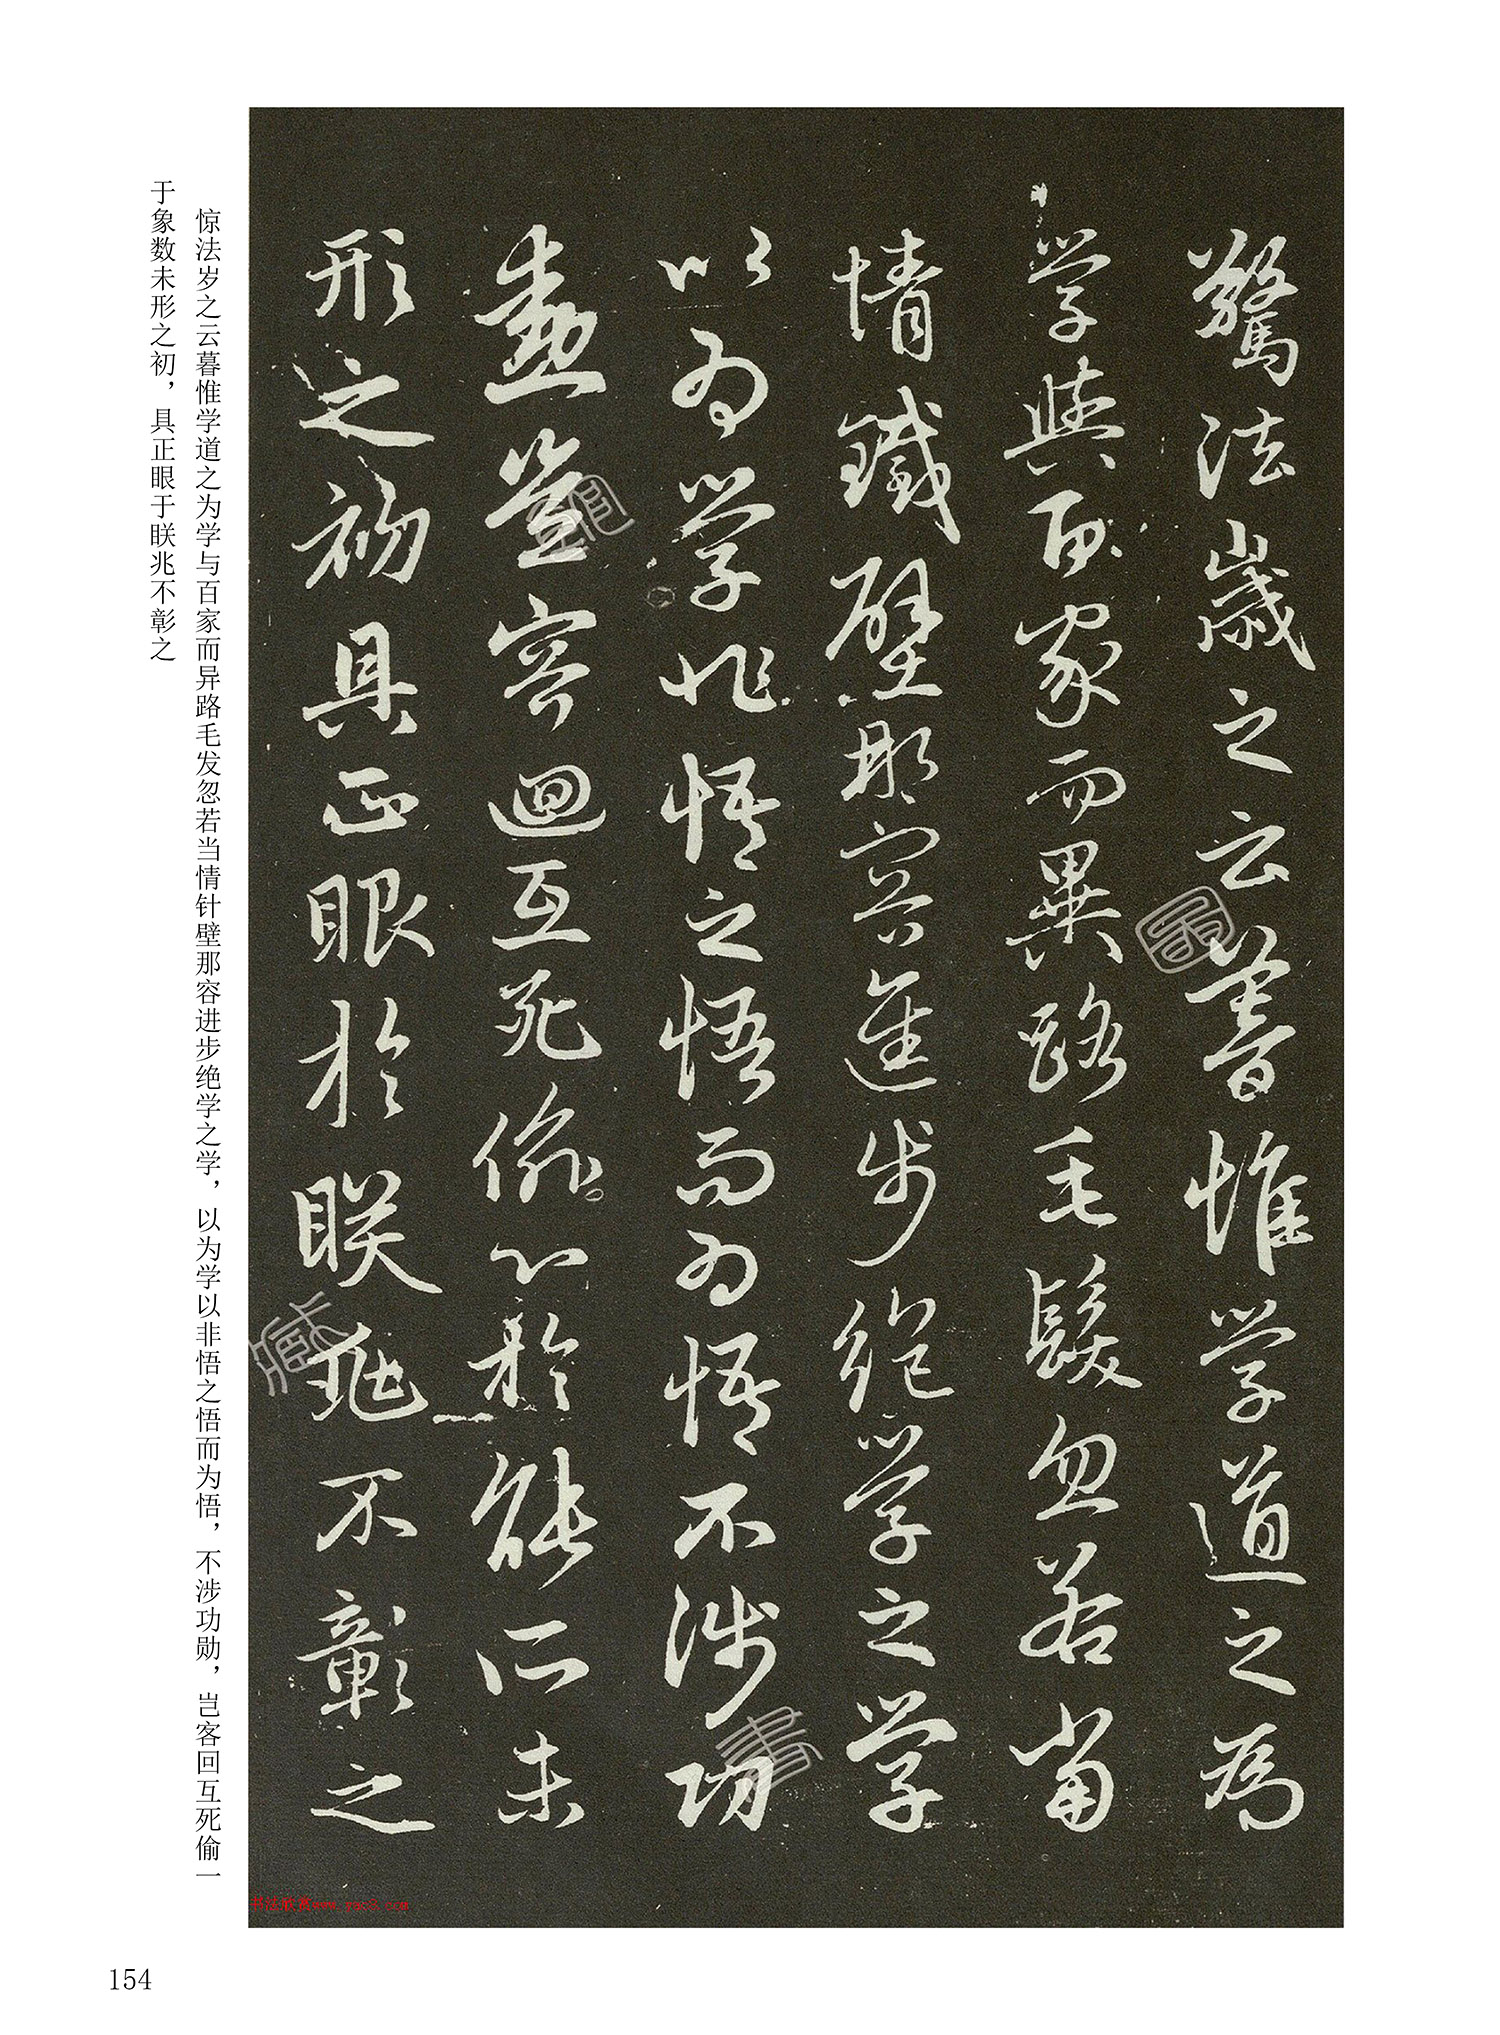 驚法歲之云暮惟學道之為
學與百家而異路毛髮忽若當
情鐵壁那容進步絕學之學
以為學非悟之悟而為悟不涉功
勳豈容迴互死偷心於能所未
形之初具正眼於眹兆不彰之
惊法岁之云暮惟学道之为学与百家而异路毛发忽若当情针壁那容进步绝学之学，以为学以非悟之悟而为悟，不涉功勋，岂客回互死偷一
于象数未形之初，具正眼于眹兆不彰之
书法欣赏www.yac8.com
154